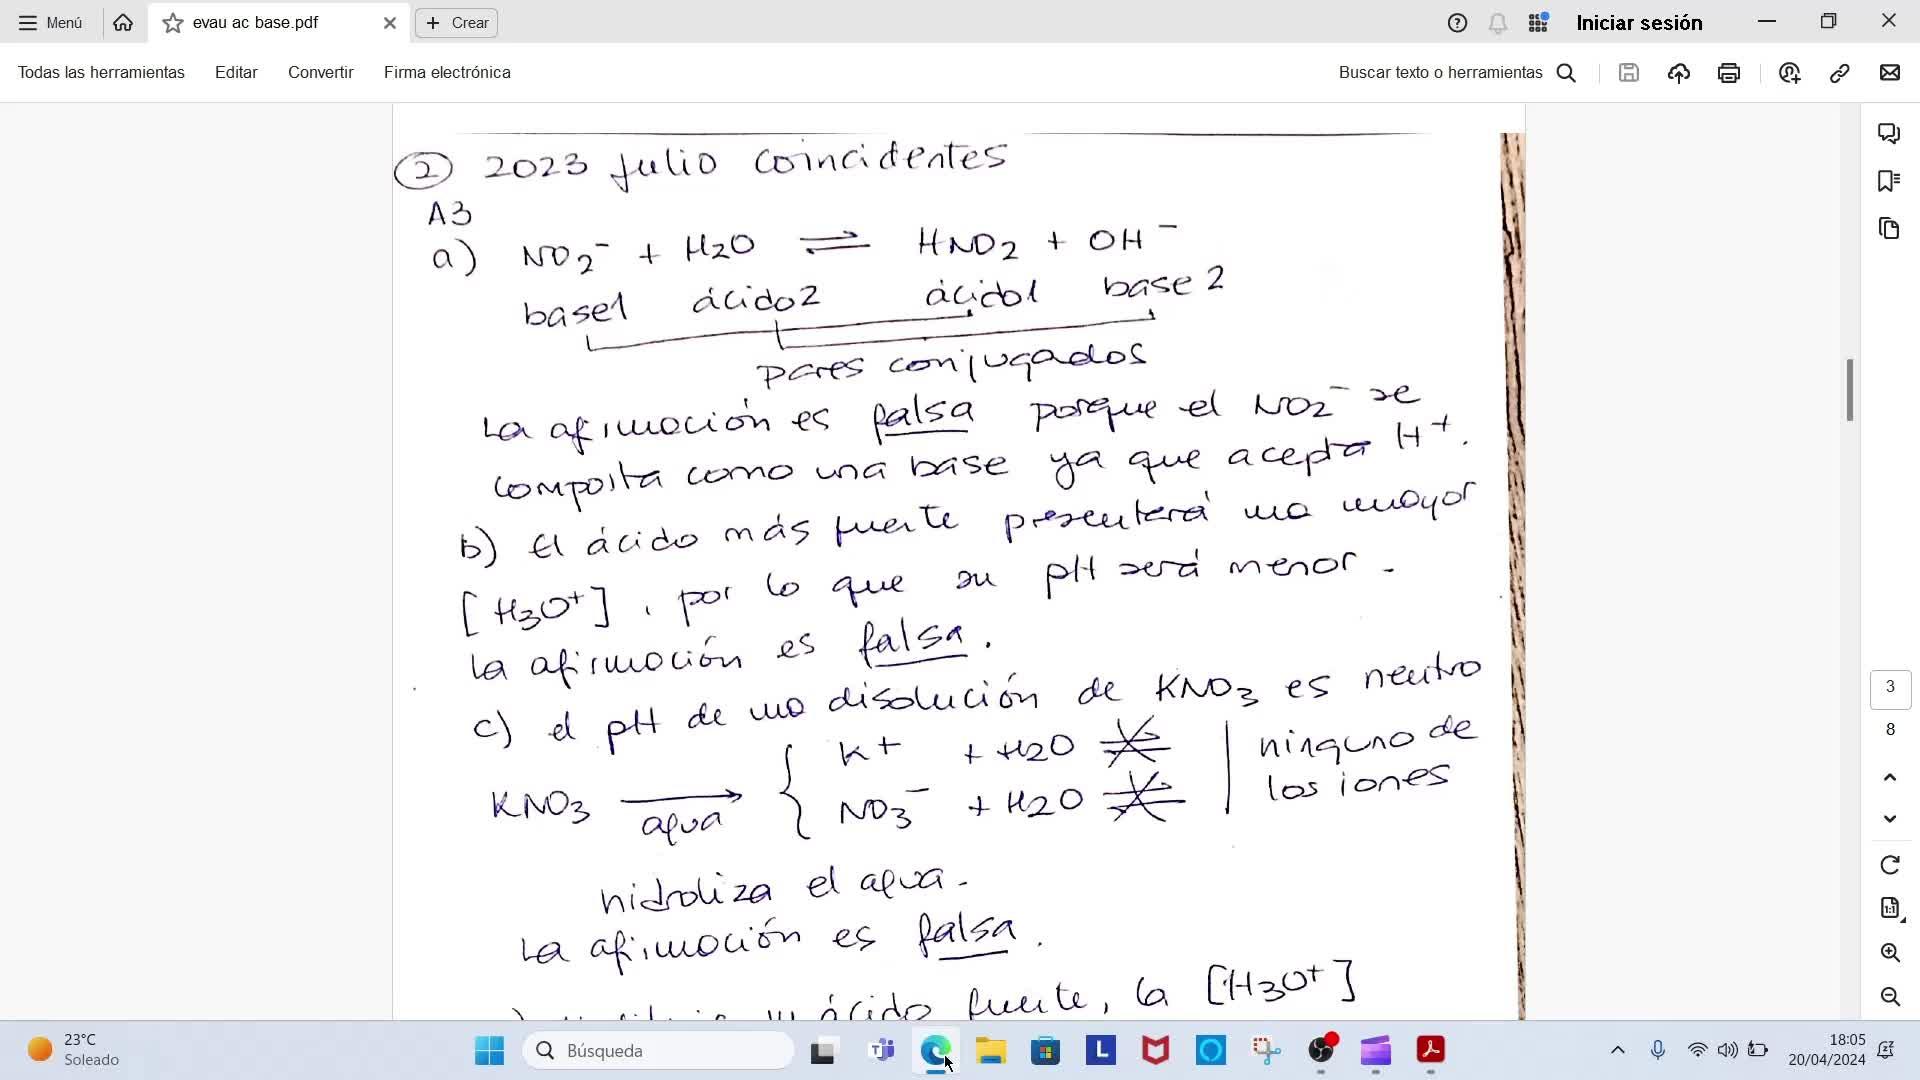 Menú
evau ac base.pdf
Crear
Iniciar sesión
Todas las herramientas
Editar
Convertir
Firma electrónica
Buscar texto o herramientas
② 2023 Julio coincidentes
A3
a) NO₂⁻ + H₂O ⇌ HNO₂ + OH⁻
base1 ácido2 ácido1 base 2
pares conjugados
La afirmación es falsa porque el NO₂⁻ se
comporta como una base ya que acepta H⁺.
b) El ácido más fuerte presentará una mayor
[H₃O⁺], por lo que su pH será menor.
La afirmación es falsa.
c) el pH de una disolución de KNO₃ es neutro
K⁺ + H₂O ninguno de
KNO₃ → agua NO₃⁻ + H₂O los iones
hidroliza el agua.
La afirmación es falsa.
ácido fuerte, la [H₃O⁺]
3
8
1:1
23°C
Soleado
Búsqueda
L
18:05
20/04/2024